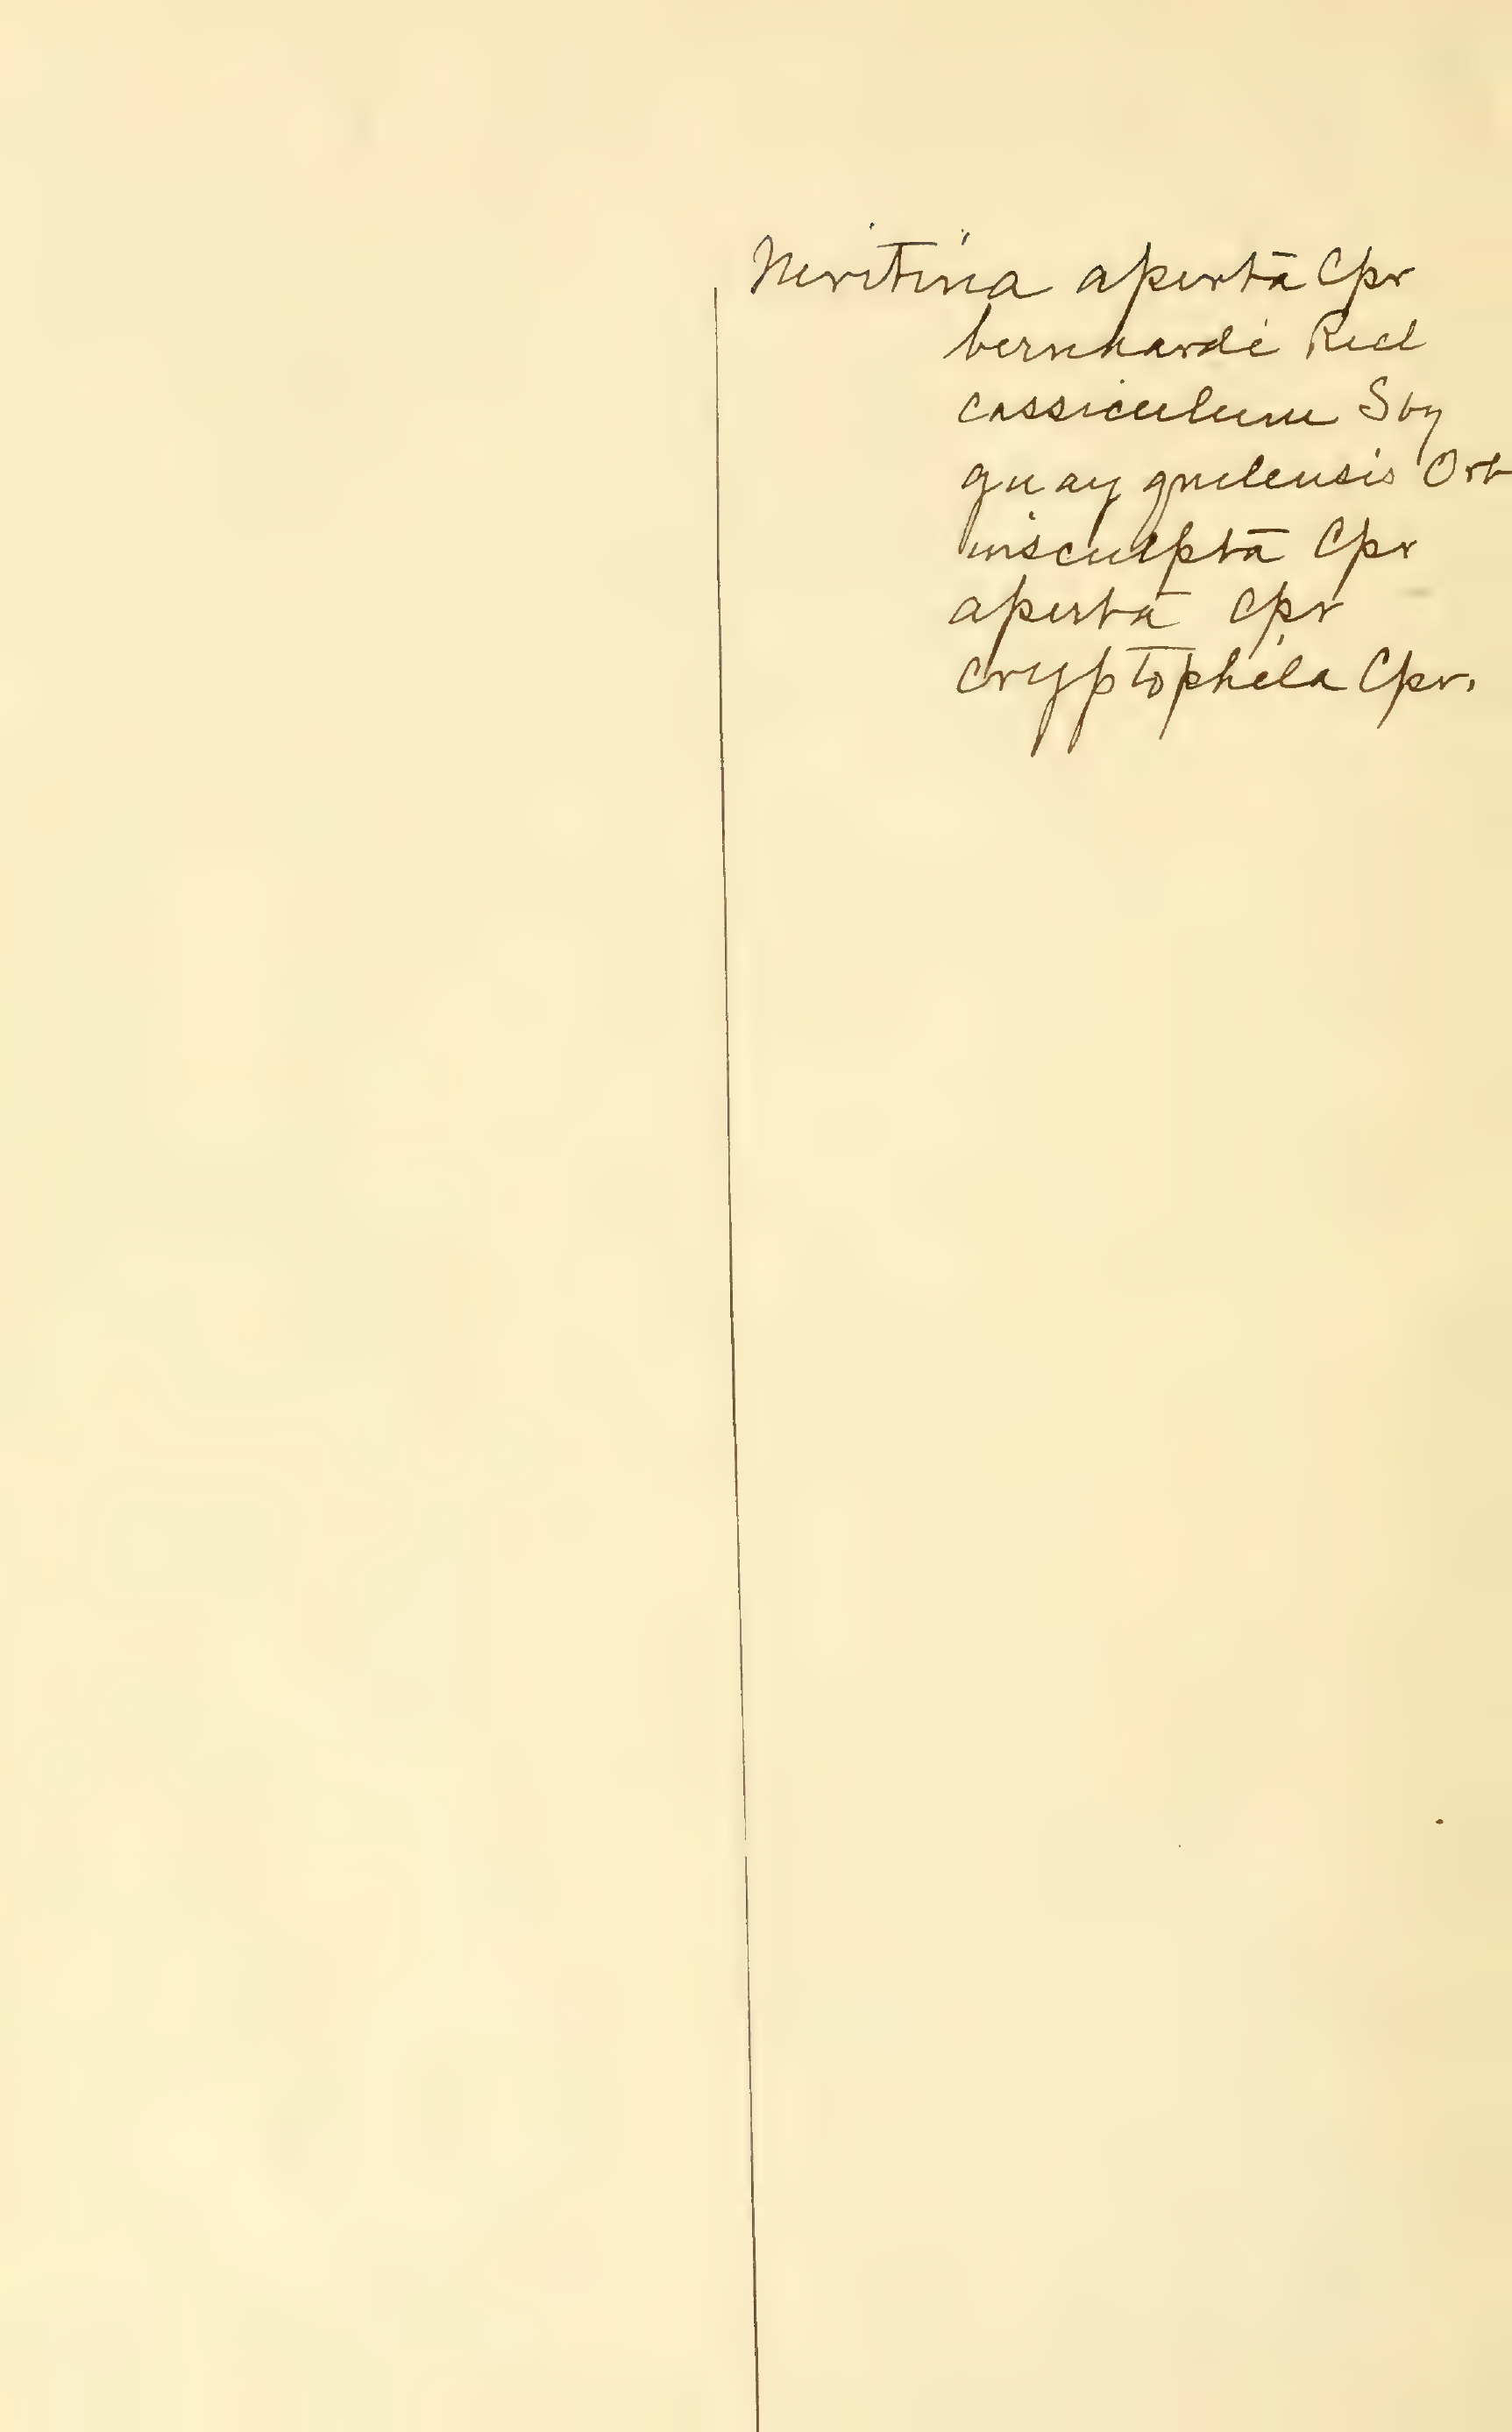 Neritina aperta Cpr
bernhardi Recl
cassiculum Sby
guayquilensis Orb
insculpta Cpr
aperta Cpr
cryptophila Cpr.